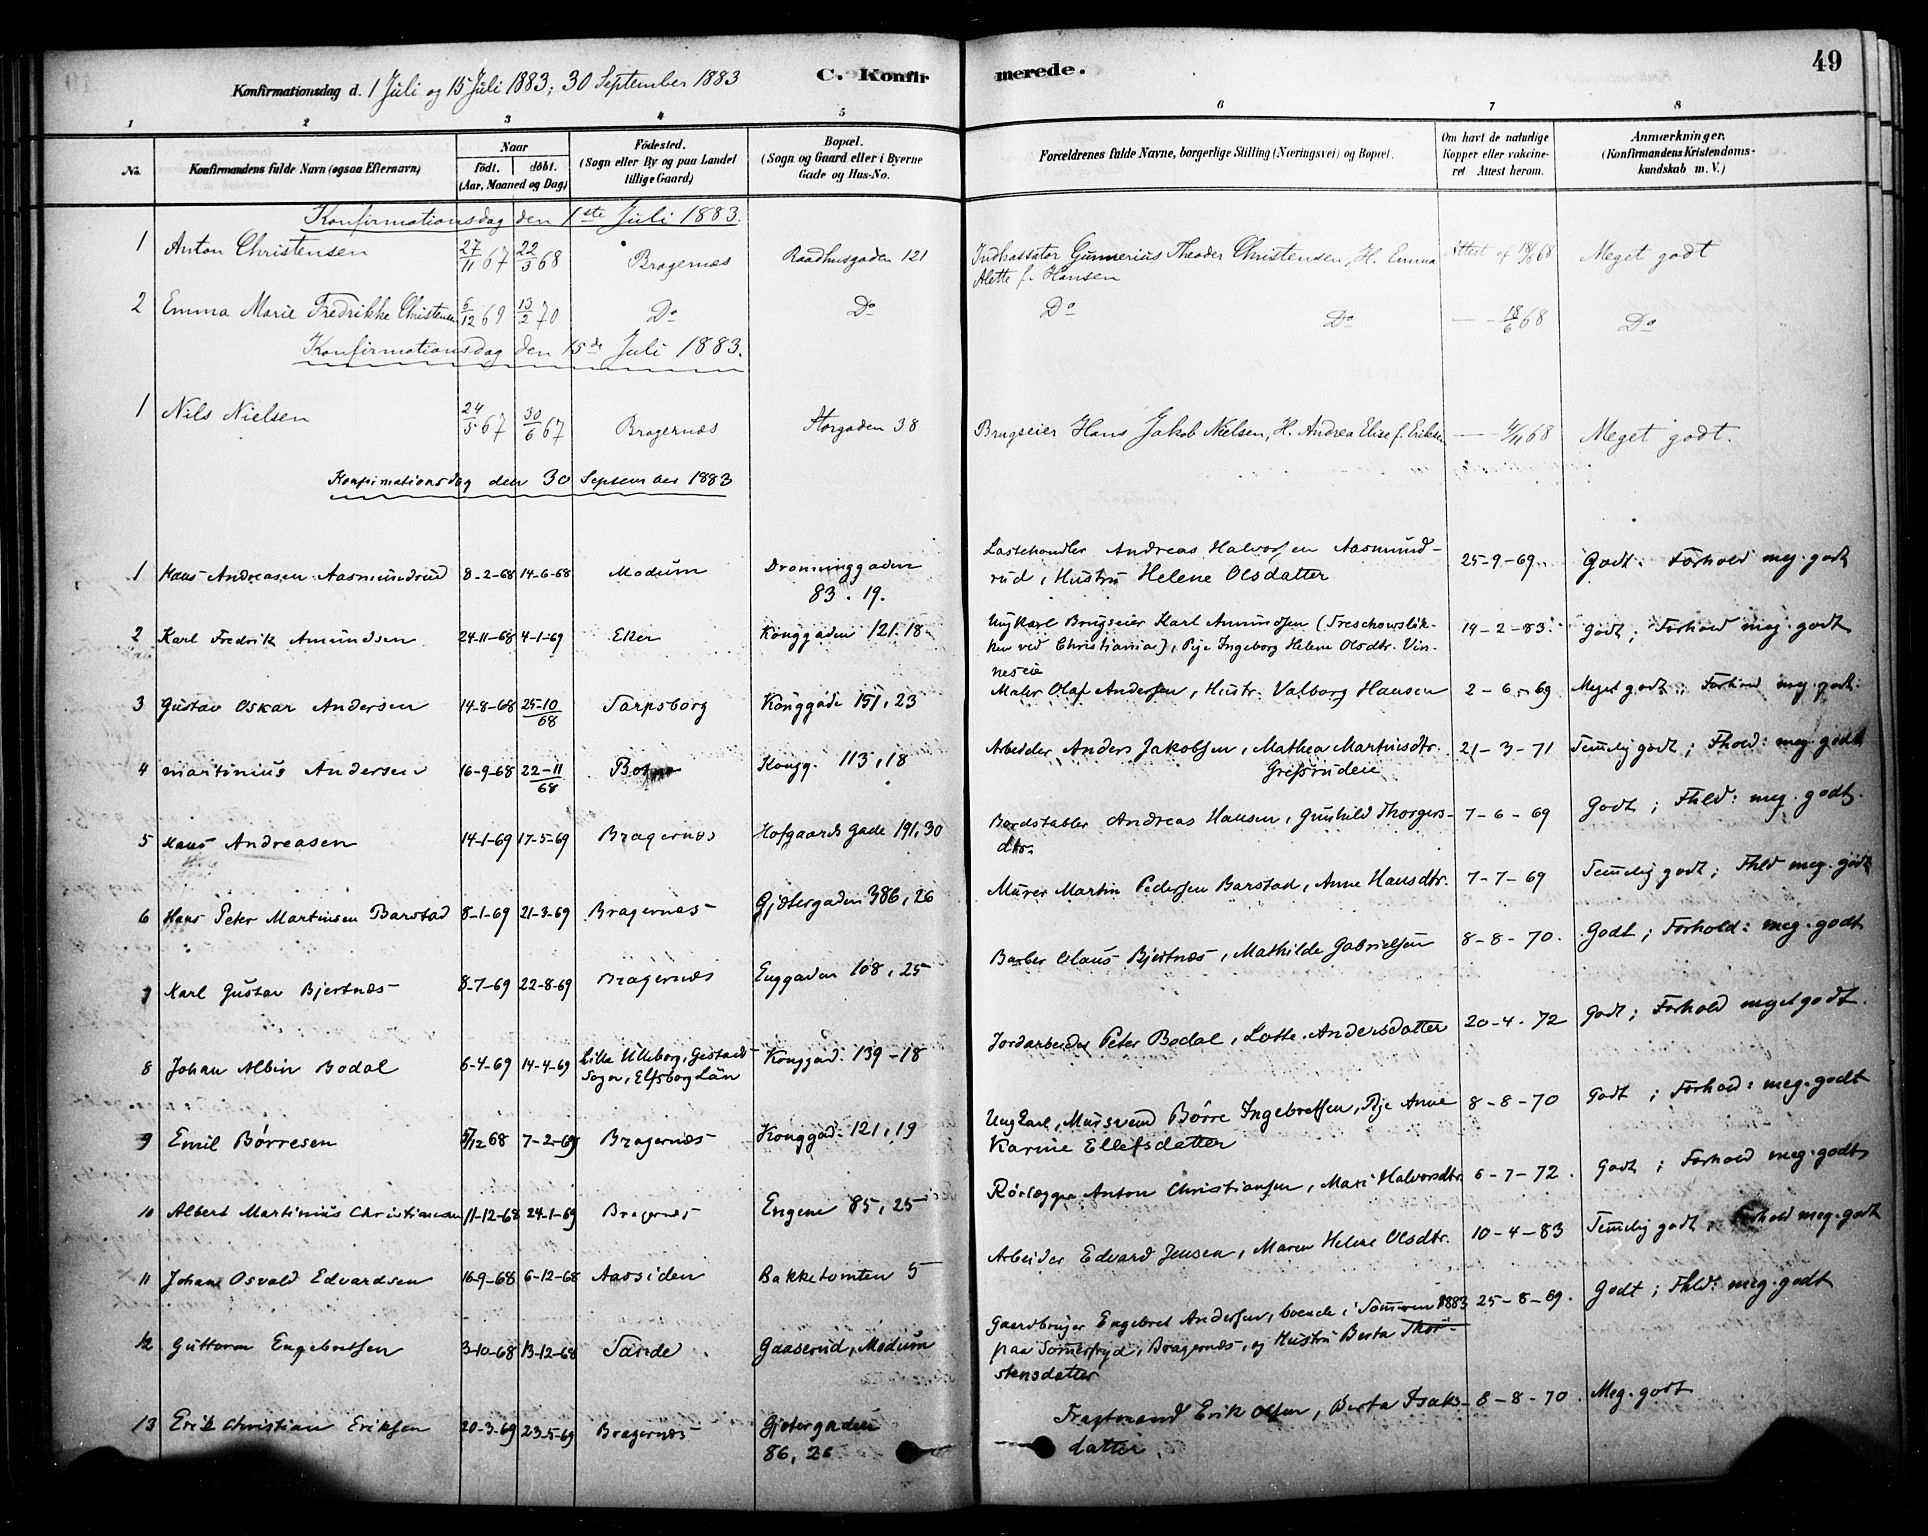 49
Konfirmationsdag d. 1 Juli og 15 Juli 1883; 30 September 1883
C. Konfirmerede.
1 2 3 4 5 6 7 8
No.
Konfirmandens fulde Navn (ogsaa Efternavn)
Naar
født. døbt.
(Aar, Maaned og Dag)
Fødested.
(Sogn eller By og paa Landet
tillige Gaard)
Bopæl.
(Sogn og Gaard eller i Byerne
Gade og Hus-No.
Forældrenes fulde Navne, borgerlige Stilling (Næringsvei) og Bopæl.
Om havt de naturlige
Kopper eller vakcine-
ret Attest herom.
Anmærkninger.
(Konfirmandens Kristendoms-
kundskab m. V.)
Konfirmationsdag den 1ste Juli 1883.
1 Anton Christensen 27/11 67 22/3 68 Bragernæs Raadhusgaden 121 Indkassator Gunnerius Theoder Christensen, H. Emma Attest af 18/6 68 Meget godt
Alette f. Hansen
2 Emma Marie Fredrikke Christensen 6/12 69 13/2 70 Do Do Do Do — - 18/6 68 Do
Konfirmationsdag den 15de Juli 1883.
1 Nils Nielsen 24/5 67 30/6 67 Bragernæs Storgaden 38 Brugseier Hans Jakob Nielsen, H. Andrea Elise f. Eriksen — 4/11 68 Meget godt.
Konfirmationsdag den 30 September 1883
1 Hans Andreasen Aasmundrud 8-2-68 14-6-68 Modum Dronninggaden
83. 19.
Lastehandler Andreas Halvorsen Aasmund-
rud, Hustru Helene Olsdatter
25-9-69. Godt. Forhold meg. godt
2 Karl Fredrik Amundsen 24-11-68 4-1-69 Eker Konggaden 121.18.
Ungkarl Brugseier Karl Amundsen (Treschowsløk-
ken ved Christiania), Pige Ingeborg Helene Olsdtr. Vin-
neseie
19-2-83. Godt; Forhold meg. godt
3 Gustav Oskar Andersen 14-8-68 25-10/68 Sarpsborg Konggade 151, 23 Maler Olaf Andersen, Hustr. Valborg Hansen 2-6-69 Meget godt; Forhold meg. godt.
4 Martinius Andersen 16-9-68 22-11/68 Kongg. 113,18
Arbeider Anders Jakobsen, Mathea Martinsdtr.
Grefsrudeie
21-3-71 Temelig godt; Fhold: meg. godt
5 Hans Andreasen 14-1-69 17-5-69 Bragernæs Hofgaards gade 191,30
Bordstabler Andreas Hansen, Gunhild Thorgers-
dtr.
7-6-69 Godt; Fhld: meg. godt.
6 Hans Peter Martinsen Barstad 8-1-69 21-3-69 Bragernæs Gjætergaden 386,26 Murer Martin Pedersen Barstad, Anne Hansdtr. 7-7-69 Temelig godt; Fhld meg. godt
7 Karl Gustav Bjertnæs 8-7-69 22-8-69 Bragernæs Enggaden 108, 25 Barber Olaus Bjertnæs, Mathilde Gabrielsen 8-8-70. Godt; Forhold: meg. godt
8 Johan Albin Bodal 6-4-69 14-4-69 Lille Ulleborg, Gestads
Sogn, Elfsborg Län
Konggad. 139-18 Jordarbeider Peter Bodal, Lotte Andersdatter 20-4-72 Godt; Forhold meget godt.
9 Emil Børresen 5/12 68 7-2-69 Bragernæs Konggad. 121,19
Ungkarl, Mursvend Børre Ingebretsen, Pige Anne
Karine Ellefsdatter
8-8-70 Godt; Forhold: meg. godt
10 Albert Martinius Christiansen 11-12-68 24-1-69 Bragernæs Engene 85,25 Rørlægger Anton Christiansen, Mari Halvorsdtr. 6-7-72. Godt; Forhold meg. godt
11 Johan Osvald Edvardsen 16-9-68 6-12-68 Aassiden Bakketomten 5 Arbeider Edvard Jensen, Maren Helene Olsdtr. 10-4-83 Temelig godt; Forhold meg. godt
12 Guttorm Engebretsen 3-10-68 13-12-68 Sande Gaaserud, Modum
Gaardbruger Engebret Andersen, boende i Sommeren 1883
paa Sommerfryd, Bragernæs, og Hustru Berta Thor-
stensdatter
25-8-69. Godt; Fhld: meg. godt
13 Erik Christian Eriksen 20-3-69 23-5-69 Bragernæs Gjætergaden
86, 26
Fragtmand Erik Olsen, Berta Isaks-
datter,
8-8-70. Meg. godt